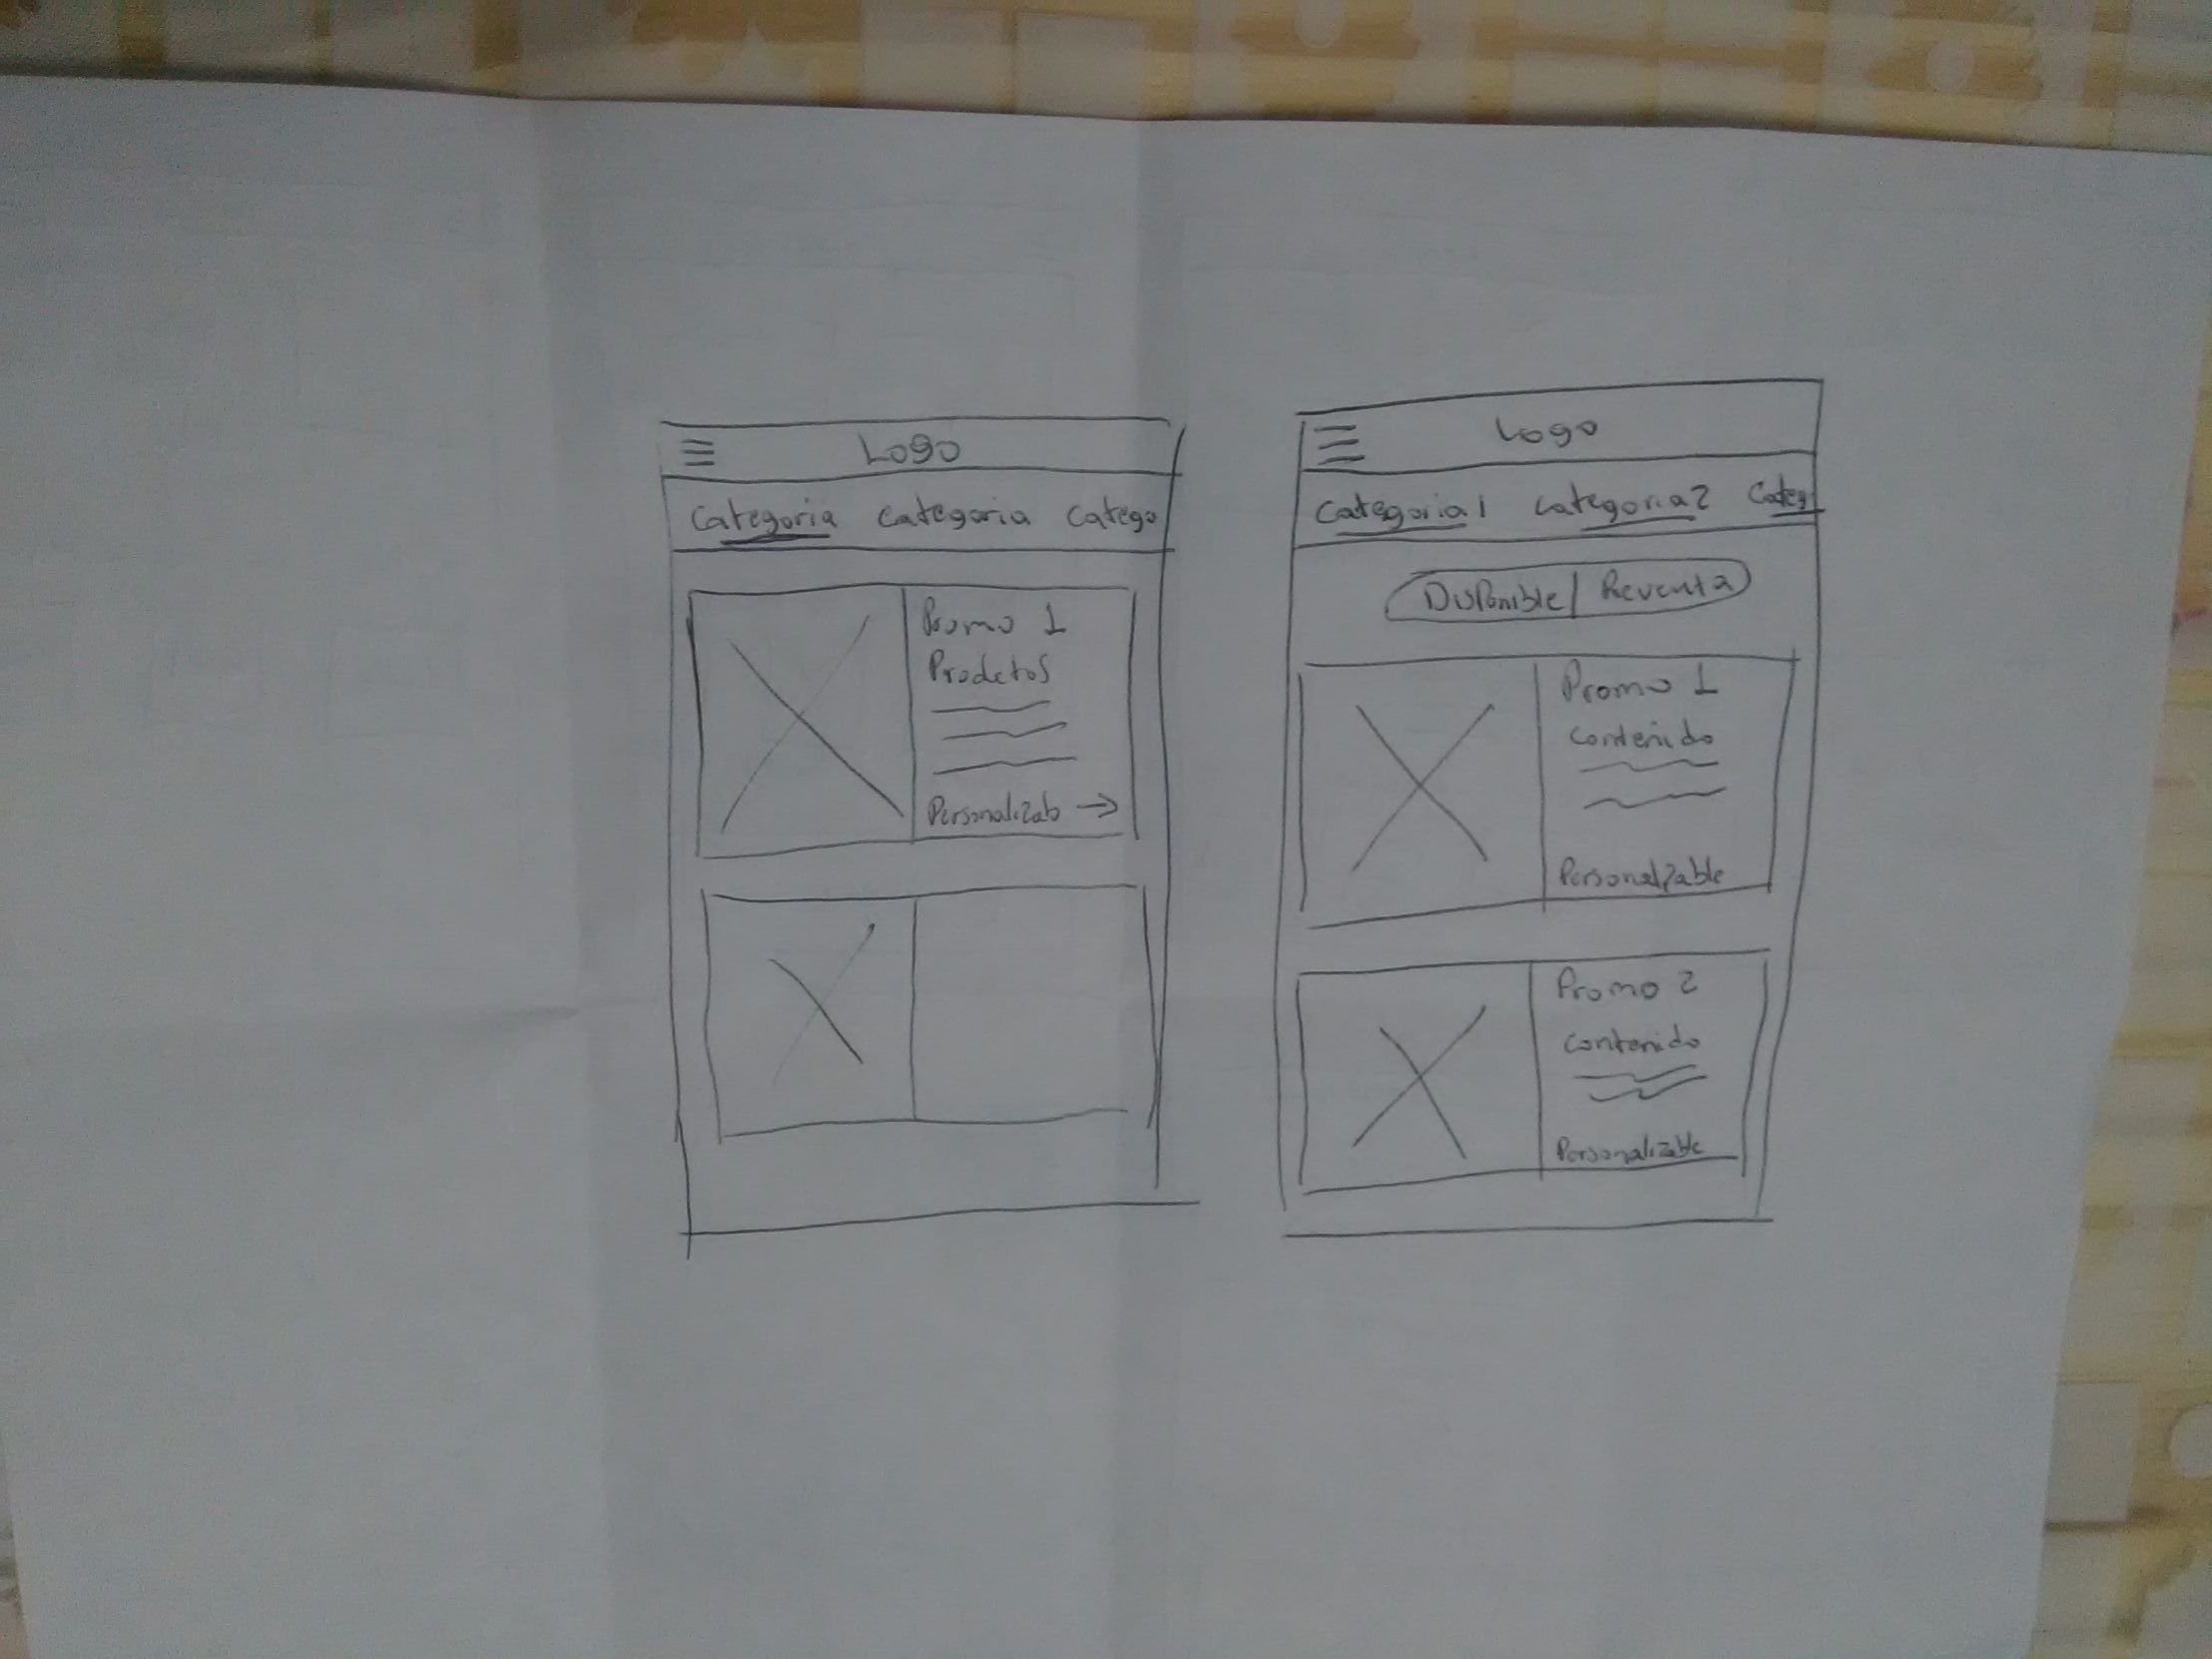 Logo
Categoria Categoria Catego
Promo 1
Prodctos
Personalizab →
Logo
Categoria 1 Categoria 2 Categ
Disponible | Reventa
Promo 1
Contenido
Personalizable
Promo 2
Contenido
Personalizable